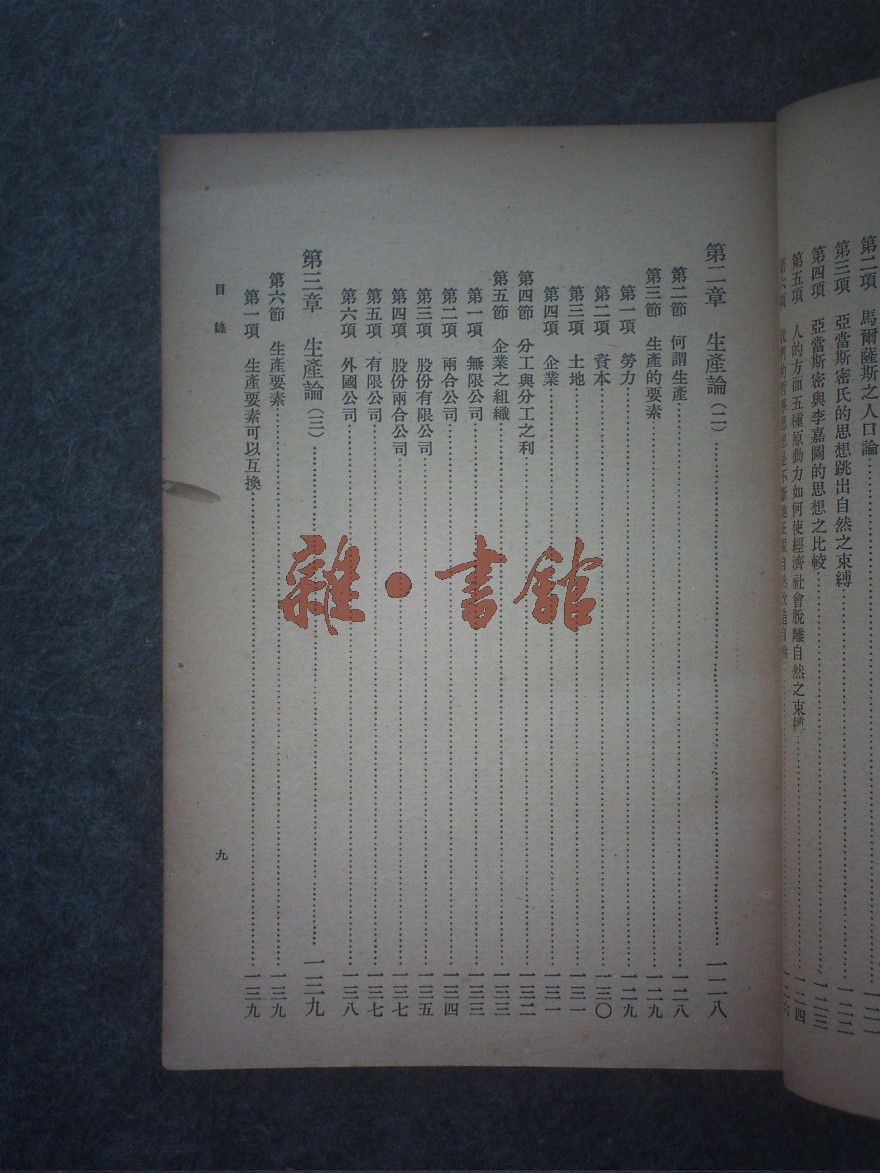 第二項　馬爾薩斯之人口論
第三項　亞當斯密氏的思想跳出自然之束縛……一二二
第四項　亞當斯密與李嘉圖的思想之比較……一二三
第五項　人的方面五種原動力如何使經濟社會脫離自然之束縛……一二四
第二章　生產論（二）……一二八
第二節　何謂生產……一二八
第三節　生產的要素……一二九
第一項　勞力……一二九
第二項　資本……一三〇
第三項　土地……一三一
第四項　企業……一三一
第四節　分工與分工之利……一三二
第五節　企業之組織……一三三
第一項　無限公司……一三三
第二項　兩合公司……一三四
第三項　股份有限公司……一三五
第四項　股份兩合公司……一三七
第五項　有限公司……一三七
第六項　外國公司……一三八
第三章　生產論（三）……一三九
第六節　生產要素……一三九
第一項　生產要素可以互換……一三九
目錄
九
雜·書館